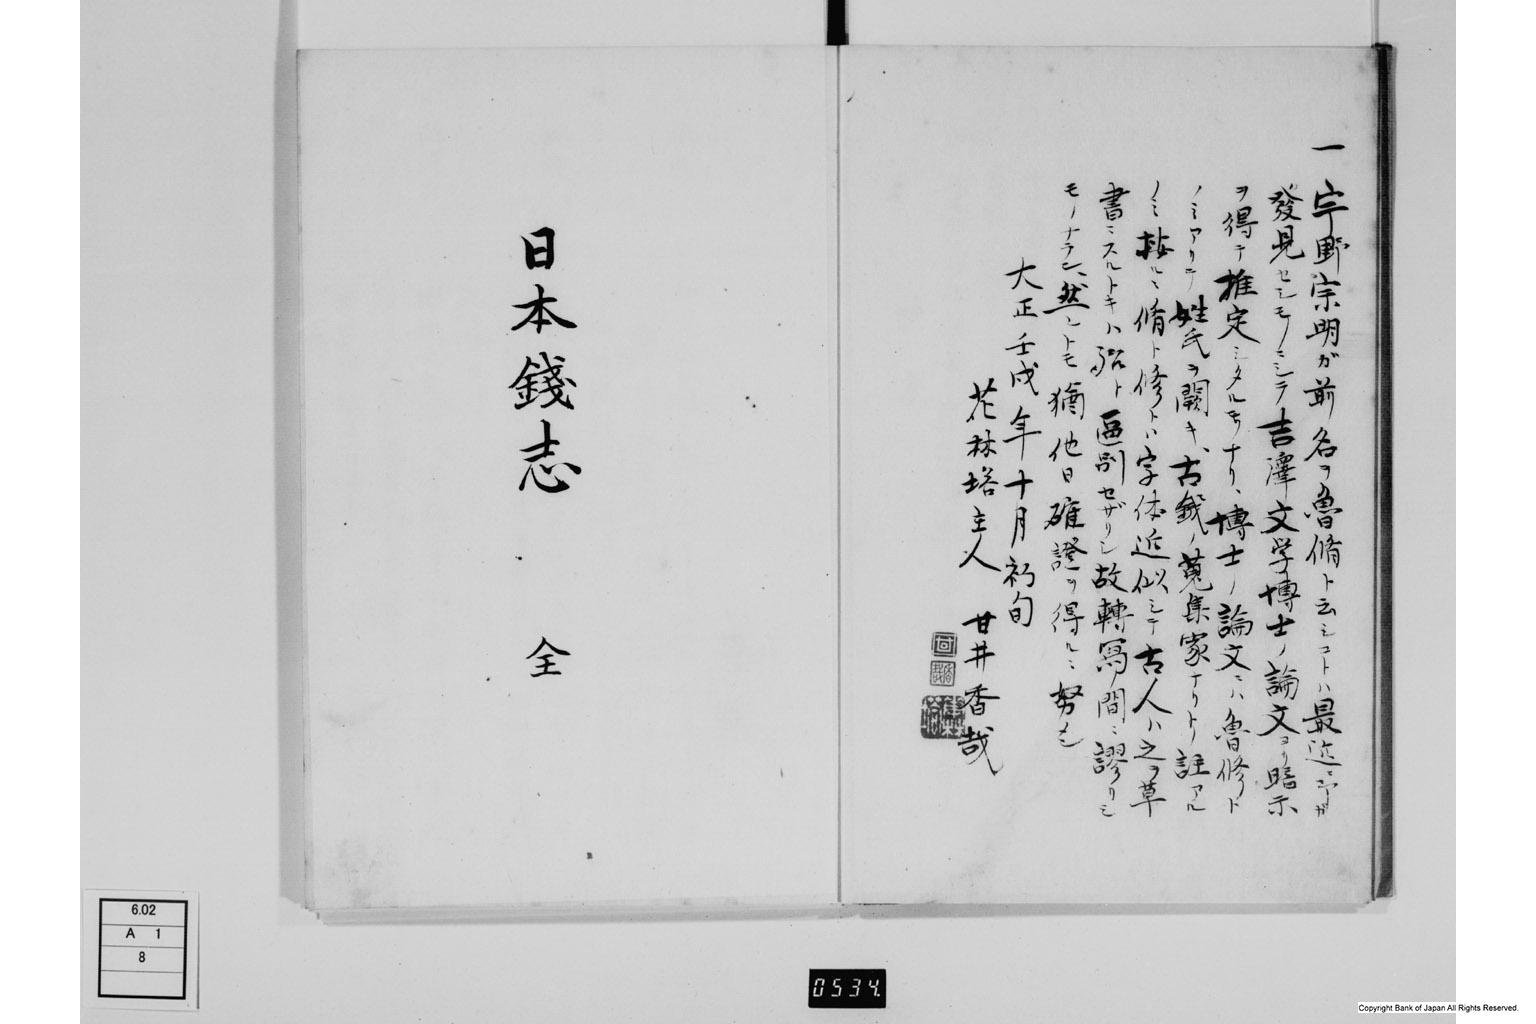 一 宇野宗明ガ前名ヲ魯脩ト云ヒシコトハ最近ニ予ガ
發見セシモノニシテ吉澤文学博士ノ論文ヨリ暗示
ヲ得テ推定シタルモノナリ、博士ノ論文ニハ魯修ト
ノミアリテ姓氏ヲ闕キ、古錢ノ蒐集家ナリトノ註アル
ノミ 按ルニ脩ト修トハ字体近似シテ古人ハ之ヲ草
書ニスルトキハ殆ト區別セザリシ故轉寫ノ間ニ謬リシ
モノナラン、然レトモ猶他日確證ヲ得ルニ努ム
大正壬戌年十月初旬
花林塔主人 甘井香哉
日本錢志 全
6.02
A 1
8
0534.
Copyright Bank of Japan All Rights Reserved.